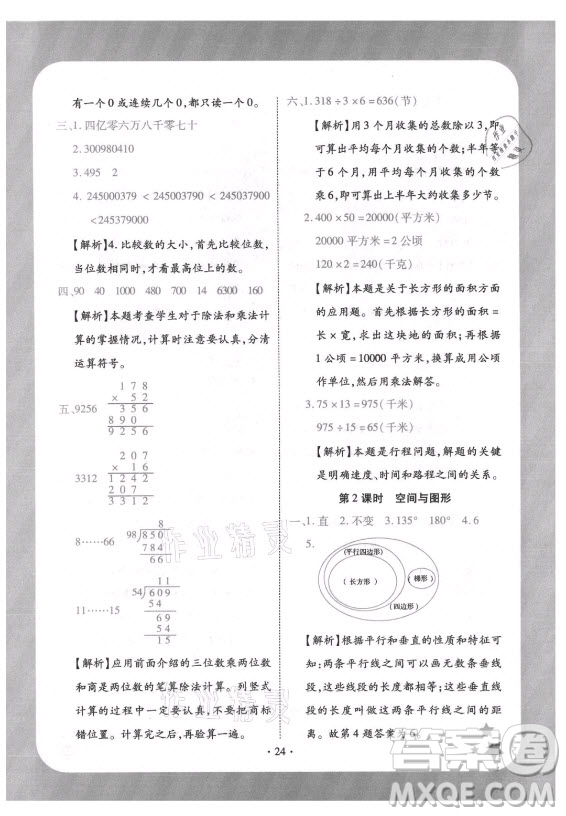 有一个0或连续几个0,都只读一个0。
三、1.四亿零六万八千零七十
2.300980410
3.495 2
4.245000379 < 245003790 < 245037900
<245379000
【解析】4.比较数的大小,首先比较位数,
当位数相同时,才比较数字的大小。
四、90 40 80 240 14 6300 160
【解析】本题考查学生对于除法和乘法计
算的掌握情况,计算时要认真,分清
运算符号。
178
× 52
五、9256 356
890
9256
207
× 16
3312 1242
207
3312
8
8……66 98/850
784
66
11
11……15 54/609
54
69
54
15
【解析】应用前面介绍的三位数乘两位数
和商是两位数的笔算除法计算。列竖式
计算的过程中一定要认真,不要将商标
错位置。计算完之后,再验算一遍。
六、1.318÷3×6=636(节)
【解析】用3个月收集的总数除以3,即
可算出平均每个月收集多少节;半年等
于6个月,用平均每个月收集的个数
乘6,可算出上半年大约收集多少节。
2.400×50=20000(平方米)
20000平方米=2公顷
120×2=240(千克)
【解析】本题是关于长方形的面积方面
的应用题。首先根据长方形的面积=
长×宽,求出这块地的面积;再根据
1公顷=10000平方米,换算成公顷;
然后用乘法解答。
3.75×13=975(千米)
975÷15=65(千米)
【解析】本题是行程问题,解题的关键
是明确速度、时间和路程之间的关系。
第2课时 空间与图形
一、1.直 2.不变 3.135° 180° 4.6
5.
(平行四边形)
(长方形)
(梯形)
(四边形)
【解析】根据平行和垂直的性质和特征可
知:两条平行线之间的距离处处相等;垂
直线段的长度都相等,这些
线段的长度也都相等于两条平行线之间的
距离。故第4题答案为6。
·24·
作业精灵
作业精灵
答案圈
MXQE.COM